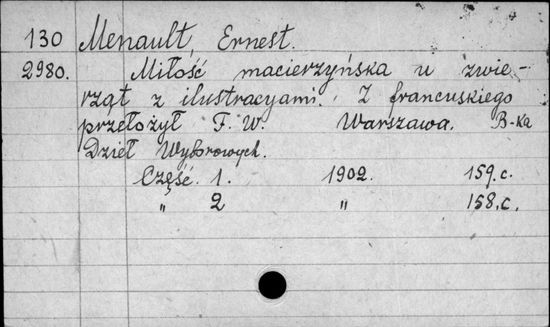 130 Menault, Ernest.
2980. Miłość macierzyńska u zwie-
rząt z ilustracyami. Z francuskiego
przełożył F. W. Warszawa. B-ka
Dzieł Wyborowych.
Część. 1. 1902. 159. c.
„ 2 „ 158. c.